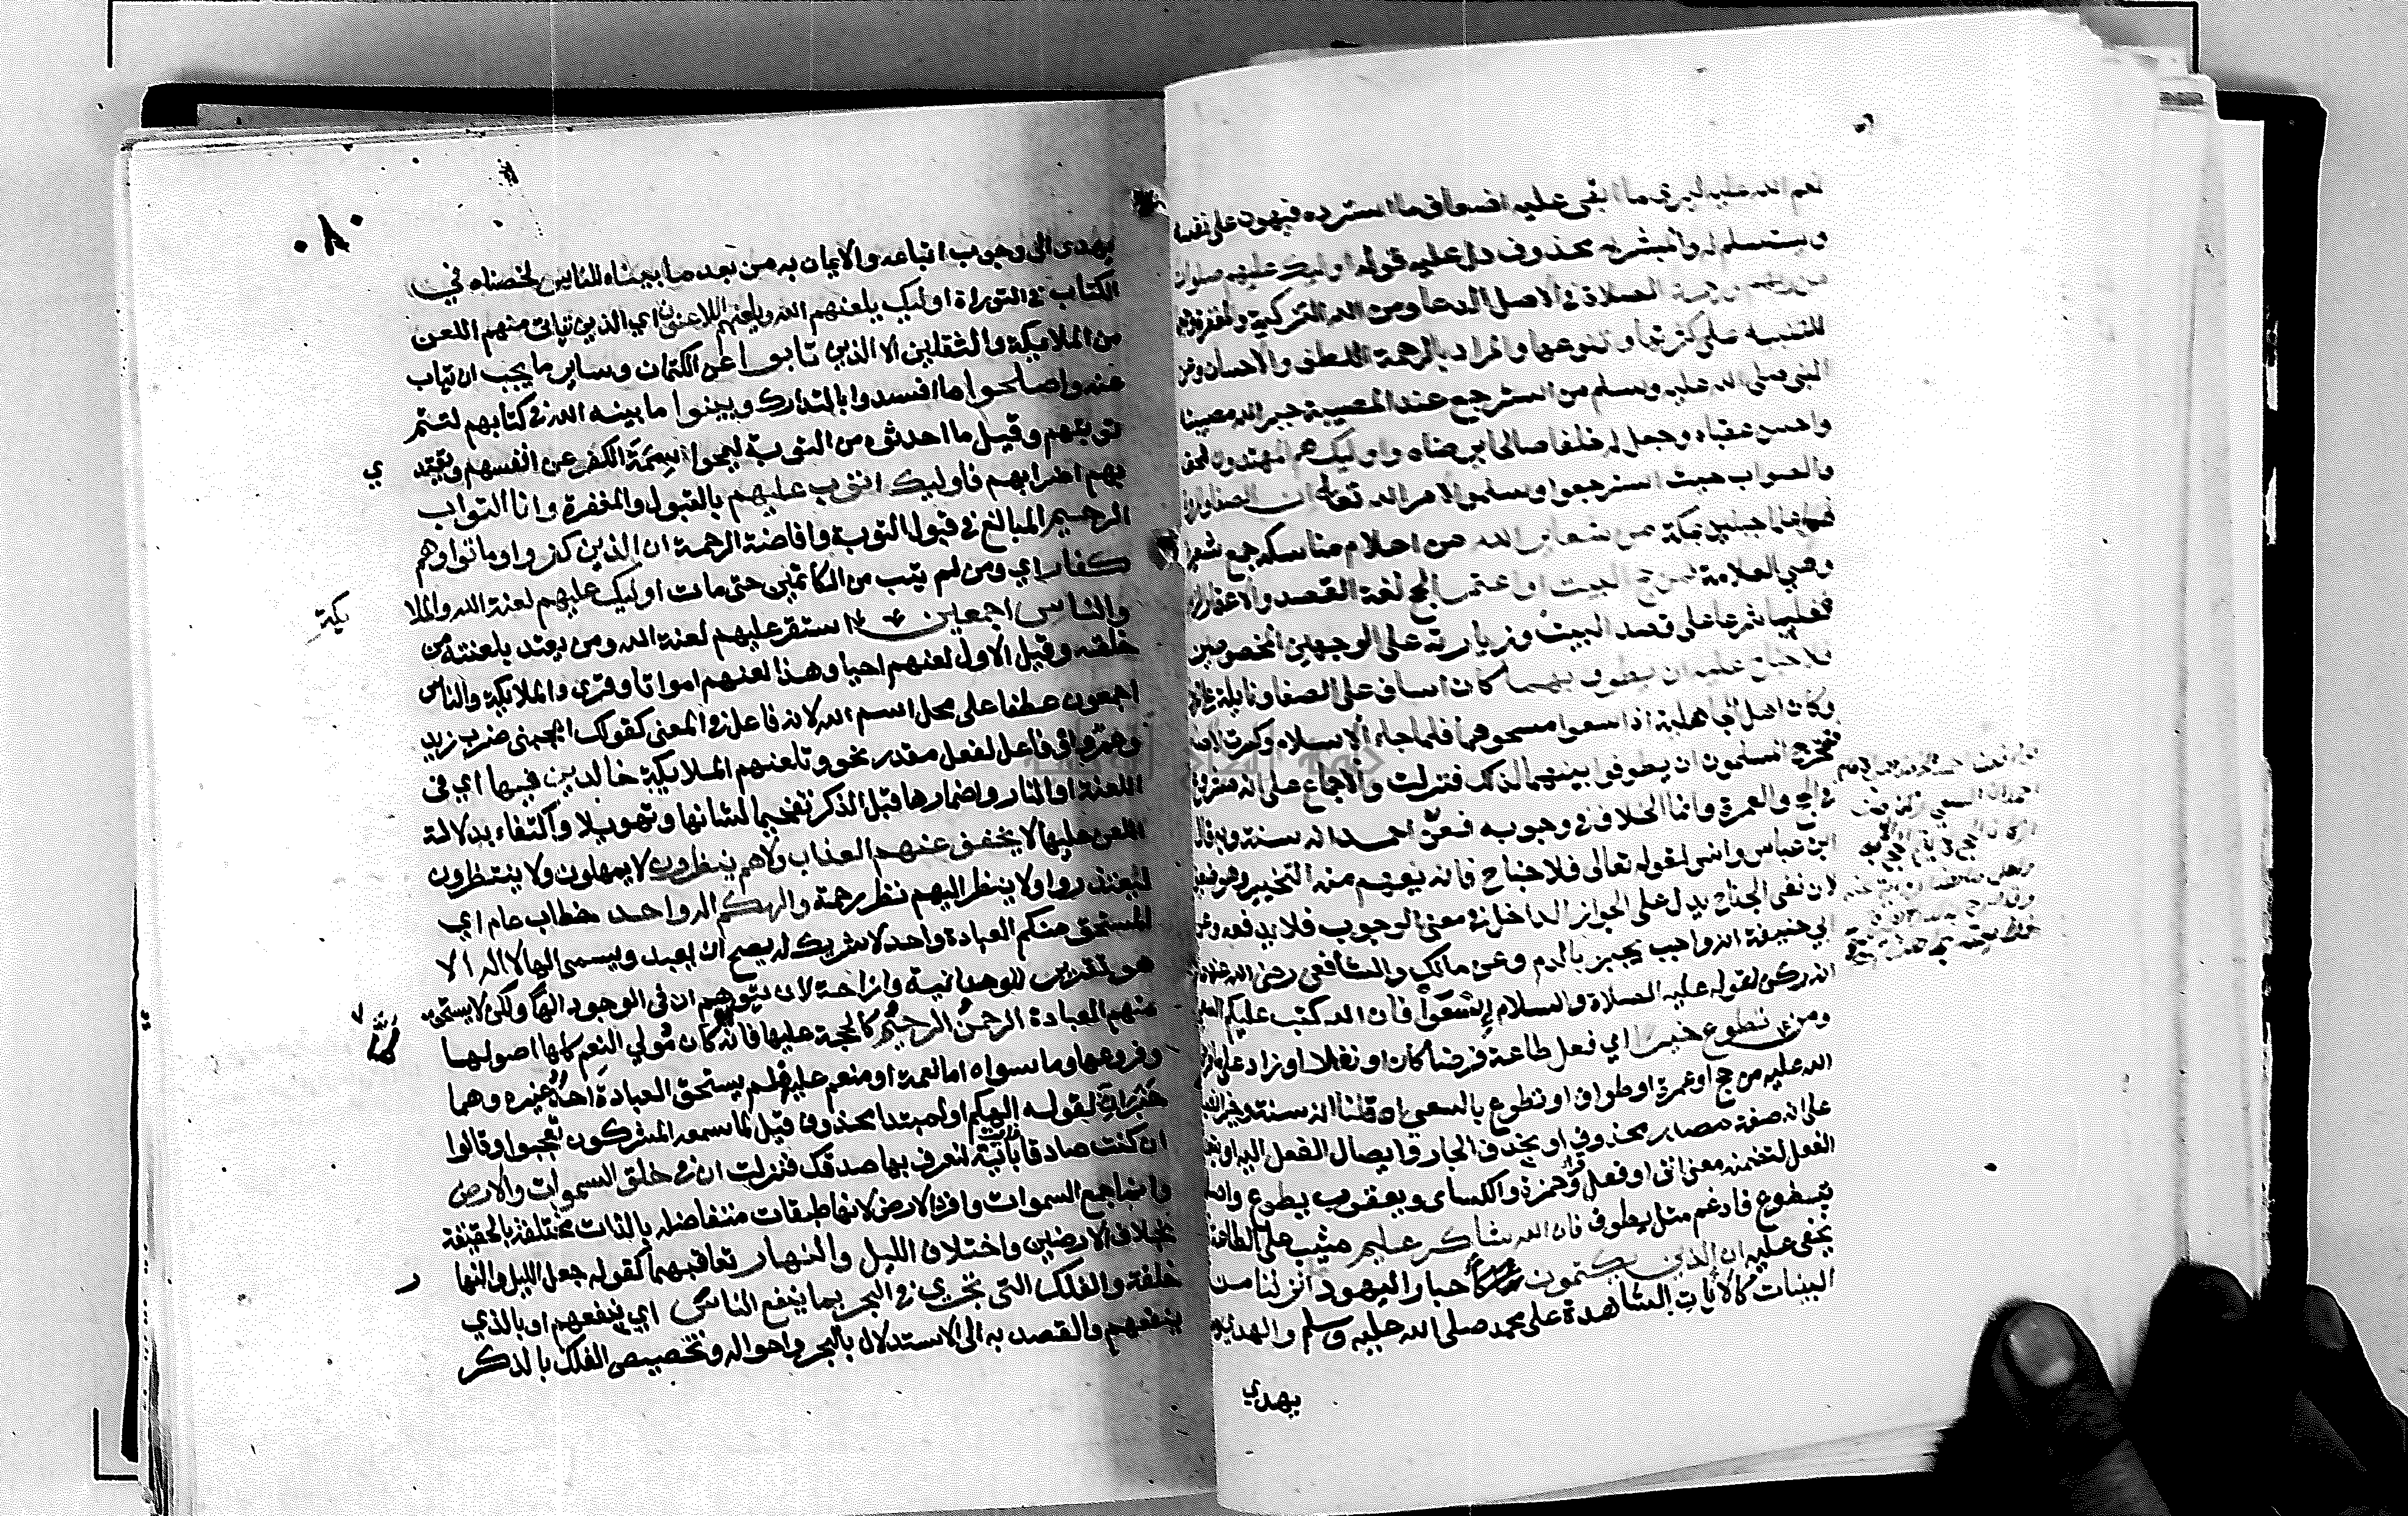 نعم الله عليه ليري ما ابقى عليه اضعاف ما استرده فيهون على نفسه
ويستسلم له والمبشر به محذوف دل عليه قوله اوليك عليهم صلوات
من ربهم ورحمة الصلاة في الاصل الدعا ومن الله التزكية والمغفرة وجمعها
للتنبيه على كثرتها وتنوعها والمراد بالرحمة اللطف والاحسان وعن
النبي صلى الله عليه وسلم من استرجع عند المصيبة جبر الله مصيبته
واحسن عقباه وجعل له خلفا صالحا يرضاه واوليك هم المهتدون للحق
والصواب حيث استرجعوا وسلموا لامر الله تعالى ان الصفا والمروة
هما علما جبلين بمكة من شعاير الله من اعلام مناسكه جمع شعيرة
وهي العلامة فمن حج البيت او اعتمر الحج لغة القصد والاعتمار الزيارة
فغلبا شرعا على قصد البيت وزيارته على الوجهين المخصوصين
فلا جناح عليه ان يطوف بهما كان اساف على الصفا ونايلة على المروة
وكان اهل الجاهلية اذا سعوا مسحوهما فلما جاء الاسلام وكسرت الاصنام
فتحرج المسلمون ان يطوفوا بينهما لذلك فنزلت والاجماع على انه مشروع
في الحج والعمرة وانما الخلاف في وجوبه فعن احمد انه سنة وبه قال
ابن عباس وانس لقوله تعالى فلا جناح فانه يفهم منه التخيير وهو ضعيف
لان نفى الجناح يدل على الجواز الداخل في معنى الوجوب فلا يدفعه وعن
ابي حنيفة انه واجب يجبر بالدم وعن مالك والشافعي رضي الله عنهما
انه ركن لقوله عليه الصلاة والسلام اسعوا فان الله كتب عليكم السعي
ومن تطوع خيرا اي فعل طاعة فرضا كان او نفلا او زاد على ما فرض
الله عليه من حج او عمرة او طواف او تطوع بالسعي ان قلنا انه سنة وخيرا نصب
على انه صفة مصدر محذوف او بحذف الجار وايصال الفعل اليه او بتعدية
الفعل لتضمنه معنى اتى او فعل وقرا حمزة والكساى ويعقوب يطوع واصله
يتطوع فادغم مثل يطوف فان الله شاكر عليم مثيب على الطاعة لا
يخفى عليه ان الذين يكتمون كاحبار اليهود انزلنا من
البينات كالايات الشاهدة على محمد صلى الله عليه وسلم والهدى وما
يهدي
٠٨٠
يهدى الى وجوب اتباعه والايمان به من بعد ما بيناه للناس لخصناه في
الكتاب في التوراة اوليك يلعنهم الله ويلعنهم اللاعنون اي الذين يتاتى منهم اللعن
من الملايكة والثقلين الا الذين تابوا عن الكتمان وساير ما يجب ان يتاب
عنه واصلحوا ما افسدوا بالتدارك وبينوا ما بينه الله في كتابهم لتتم
توبتهم وقيل ما احدثوه من التوبة ليمحوا سمة الكفر عن انفسهم ويقتد
ي
بهم اضرابهم فاوليك اتوب عليهم بالقبول والمغفرة وانا التواب
الرحيم المبالغ في قبول التوبة وافاضة الرحمة ان الذين كفروا وماتوا وهم
كفار اي ومن لم يتب من الكاتمين حتى مات اوليك عليهم لعنة الله والملا
يكة
والناس اجمعين استقر عليهم لعنة الله ومن يعتد بلعنته من
خلقه وقيل الاول لعنهم احيا وهذا لعنهم امواتا وقرى والملايكة والناس
اجمعون عطفا على محل اسم الله لانه فاعل في المعنى كقولك اعجبني ضرب زيد
وعمرو او فاعل لفعل مقدر نحو وتلعنهم الملايكة خالدين فيها اي في
اللعنة او النار واضمارها قبل الذكر تفخيما لشانها وتهويلا واكتفاء بدلالة
اللعن عليها لا يخفف عنهم العذاب ولا هم ينظرون لا يمهلون ولا ينتظرون
ليعتذروا او لا ينظر اليهم نظر رحمة والهكم اله واحد خطاب عام اي
المستحق منكم العبادة واحد لا شريك له يصح ان يعبد ويسمى الها لا اله الا
هو تقرير للوحدانية وازاحة لان يتوهم ان في الوجود الها ولكن لا يستحق
منهم العبادة الرحمن الرحيم كالحجة عليها فانه كان مولي النعم كلها اصولها
وفروعها وما سواه اما نعمة او منعم عليه لم يستحق العبادة احد غيره وهما
خبران لقوله الهكم او لمبتدا محذوف قيل لما سمعه المشركون تعجبوا وقالوا
ان كنت صادقا فات باية نعرف بها صدقك فنزلت ان في خلق السموات والارض
وانما جمع السموات وافرد الارض لانها طبقات متفاضلة بالذات مختلفة بالحقيقة
بخلاف الارضين واختلاف الليل والنهار تعاقبهما كقوله جعل الليل والنها
ر
خلفة والفلك التي تجري في البحر بما ينفع الناس اي ينفعهم او بالذي
ينفعهم والقصد به الى الاستدلال بالبحر واحواله وتخصيص الفلك بالذكر